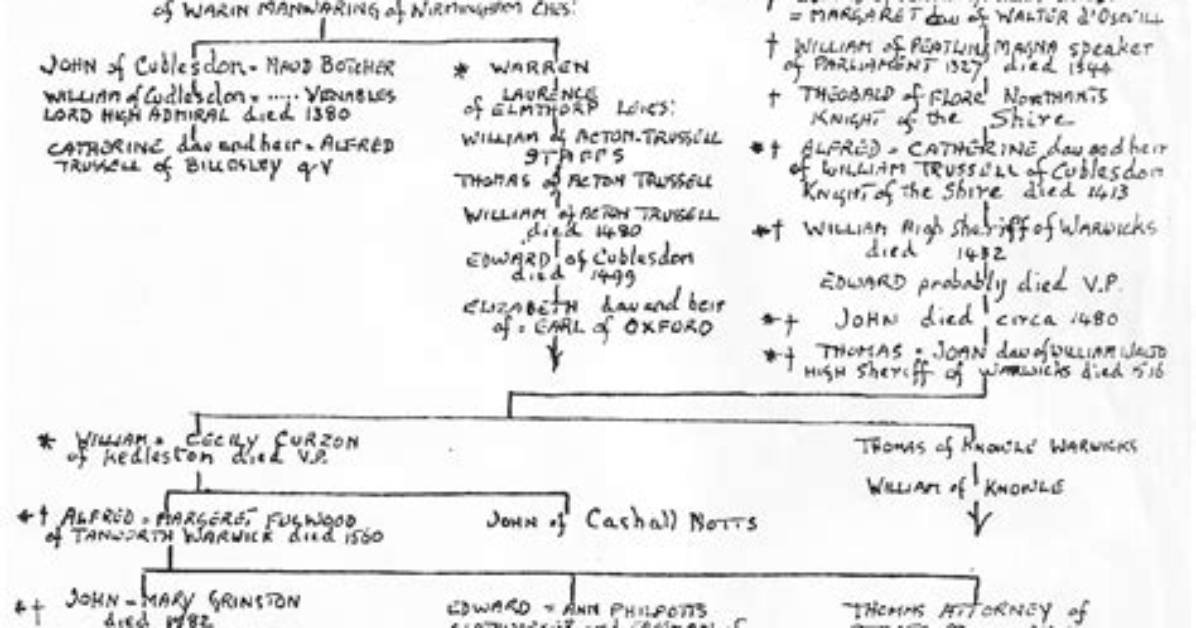 of WARIN MANWARING of NIRMINGHAM CHES:
JOHN of Cublesdon = MAUD BOTCHER
WILLIAM of Cudlesdon = ..... VENABLES
LORD HIGH ADMIRAL died 1380
CATHERINE dau and heir = ALFRED
TRUSSELL of BILLDSLEY qv
* WARREN
LAURENCE
of ELMTHORP LEICS:
WILLIAM of ACTON-TRUSSELL
STAFFS
THOMAS of ACTON TRUSSELL
WILLIAM of ACTON TRUSSELL
died 1480
EDWARD of Cublesdon
died 1499
ELIZABETH dau and heir
of = EARL of OXFORD
= MARGARET dau of WALTER d'OSEVILL
† WILLIAM of PEATLING MAGNA speaker
of PARLIAMENT 1327 died 1344
† THEOBALD of FLORE NORTHANTS
KNIGHT of the Shire
*† ALFRED = CATHERINE dau and heir
of WILLIAM TRUSSELL of Cublesdon
KNIGHT of the Shire died 1413
*† WILLIAM High Sheriff of WARWICKS
died
EDWARD probably died V.P.
*† JOHN died circa 1480
*† THOMAS = JOAN dau of WILLIAM
HIGH Sheriff of WARWICKS died
* WILLIAM = CECILY CURZON
of Kedleston died V.P.
THOMAS of KNOWLE WARWICKS
WILLIAM of KNOWLE
*† ALFRED = MARGERET FULWOOD
of TANWORTH WARWICK died 1560
JOHN of Cashall NOTTS
*† JOHN = MARY GRINSTON
died
EDWARD = ANN PHILPOTTS
THOMAS ATTORNEY of